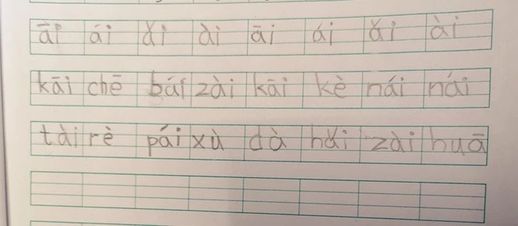 āi ái ǎi ài āi ái ǎi ài
kāi chē bái zài kāi kè nái nái
tài rè pái xù dà hǎi zài huā